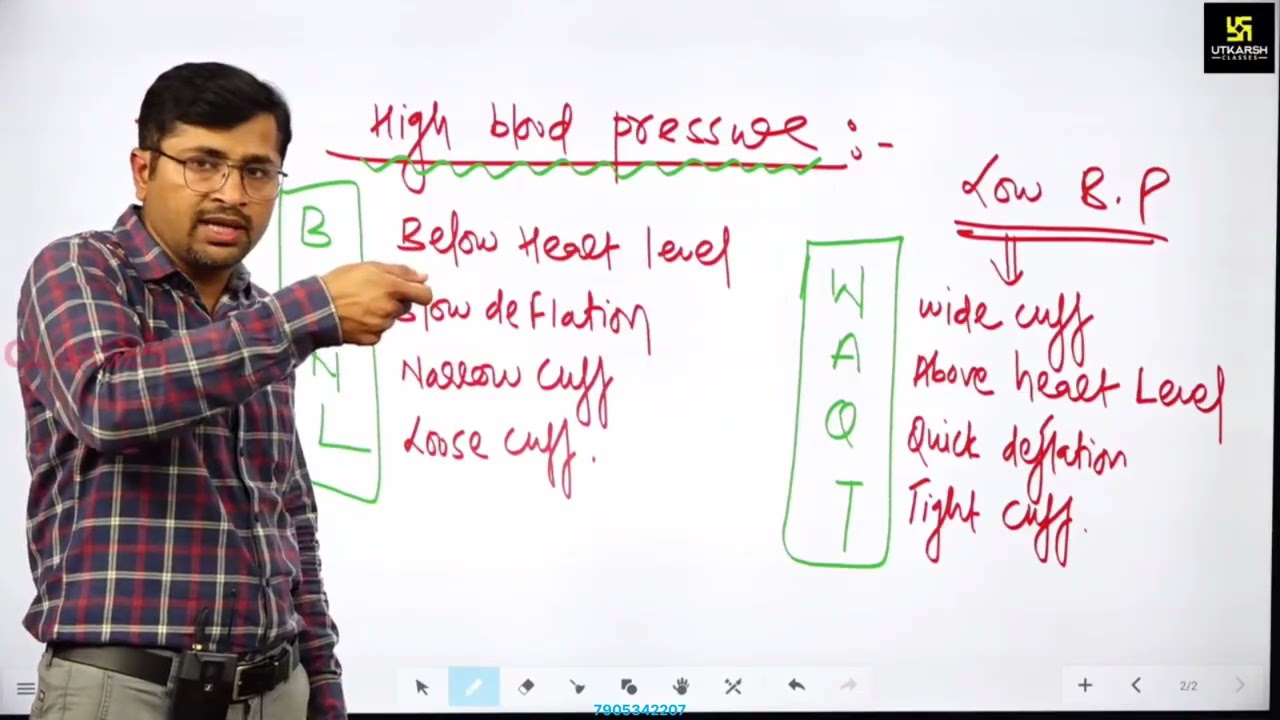 UTKARSH
CLASSES
High blood pressure :-
Low B.P
B
Below Heart level
Slow deflation
N
Narrow Cuff
L
Loose Cuff.
W
wide cuff
A
Above heart Level
Q
Quick deflation
T
Tight Cuff.
2/2
7905342207